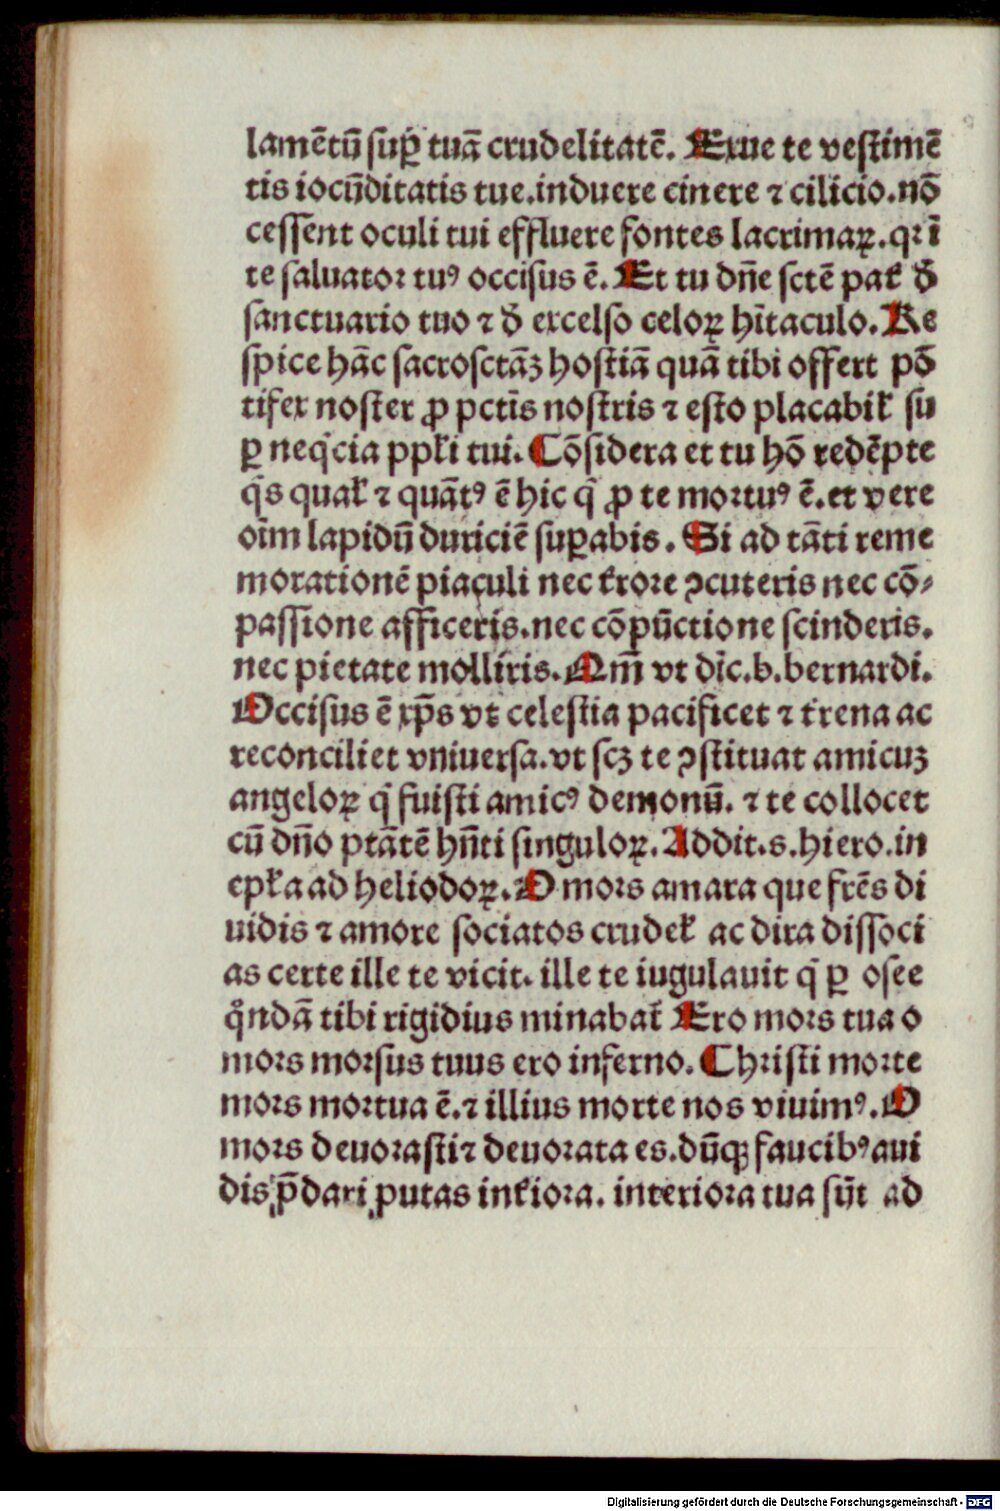 lamētū suꝑ tuā crudelitatē. Exue te vestimē
tis iocūditatis tue.induere cinere ⁊ cilicio.nō
cessent oculi tui effluere fontes lacrimaꝝ.qꝛ ī
te saluatoꝛ tuꝰ occisus ē. Et tu dn̄e sctē pat̄ đ
sanctuario tuo ⁊ đ excelso celoꝝ hītaculo. Re
spice hāc sacrosctāꝫ hostiā quā tibi offert pō
tifex noster ꝓ pctīs nostris ⁊ esto placabił su
ꝑ neq̇cia ppłi tui. Cōsidera et tu hō redēpte
q̇s quał ⁊ quātꝰ ē hic q̇ ꝓ te moꝛtuꝰ ē.et vere
oīm lapidū duriciē suꝑabis. Si ad tāti reme
morationē piaculi nec t̄rore ꝯcuteris nec cō⸗
passione afficeris.nec cōpūctione scinderis.
nec pietate molliris. Qm̄ vt dīc.b.bernardi.
Occisus ē xp̄s vt celestia pacificet ⁊ t̄rena ac
reconciliet vniuersa.vt scꝫ te ꝯstituat amicuꝫ
angeloꝝ q̇ fuisti amicꝰ demonū. ⁊ te collocet
cū dn̄o ptātē hn̄ti singuloꝝ. Addit.s.hiero.in
epła ad heliodoꝝ. O moꝛs amara que frēs di
uidis ⁊ amore sociatos crudeł ac dira dissoci
as certe ille te vicit. ille te iugulauit q̇ ꝑ osee
qͦndā tibi rigidius minabat̄ Ero moꝛs tua o
moꝛs moꝛsus tuus ero inferno. Christi moꝛte
moꝛs moꝛtua ē.⁊ illius moꝛte nos viuimꝰ. O
moꝛs deuoꝛasti⁊ deuoꝛata es.dūqꝫ faucibꝰ aui
dis p̄dari putas int̄ioꝛa. interioꝛa tua sūt ad
Digitalisierung gefördert durch die Deutsche Forschungsgemeinschaft - DFG